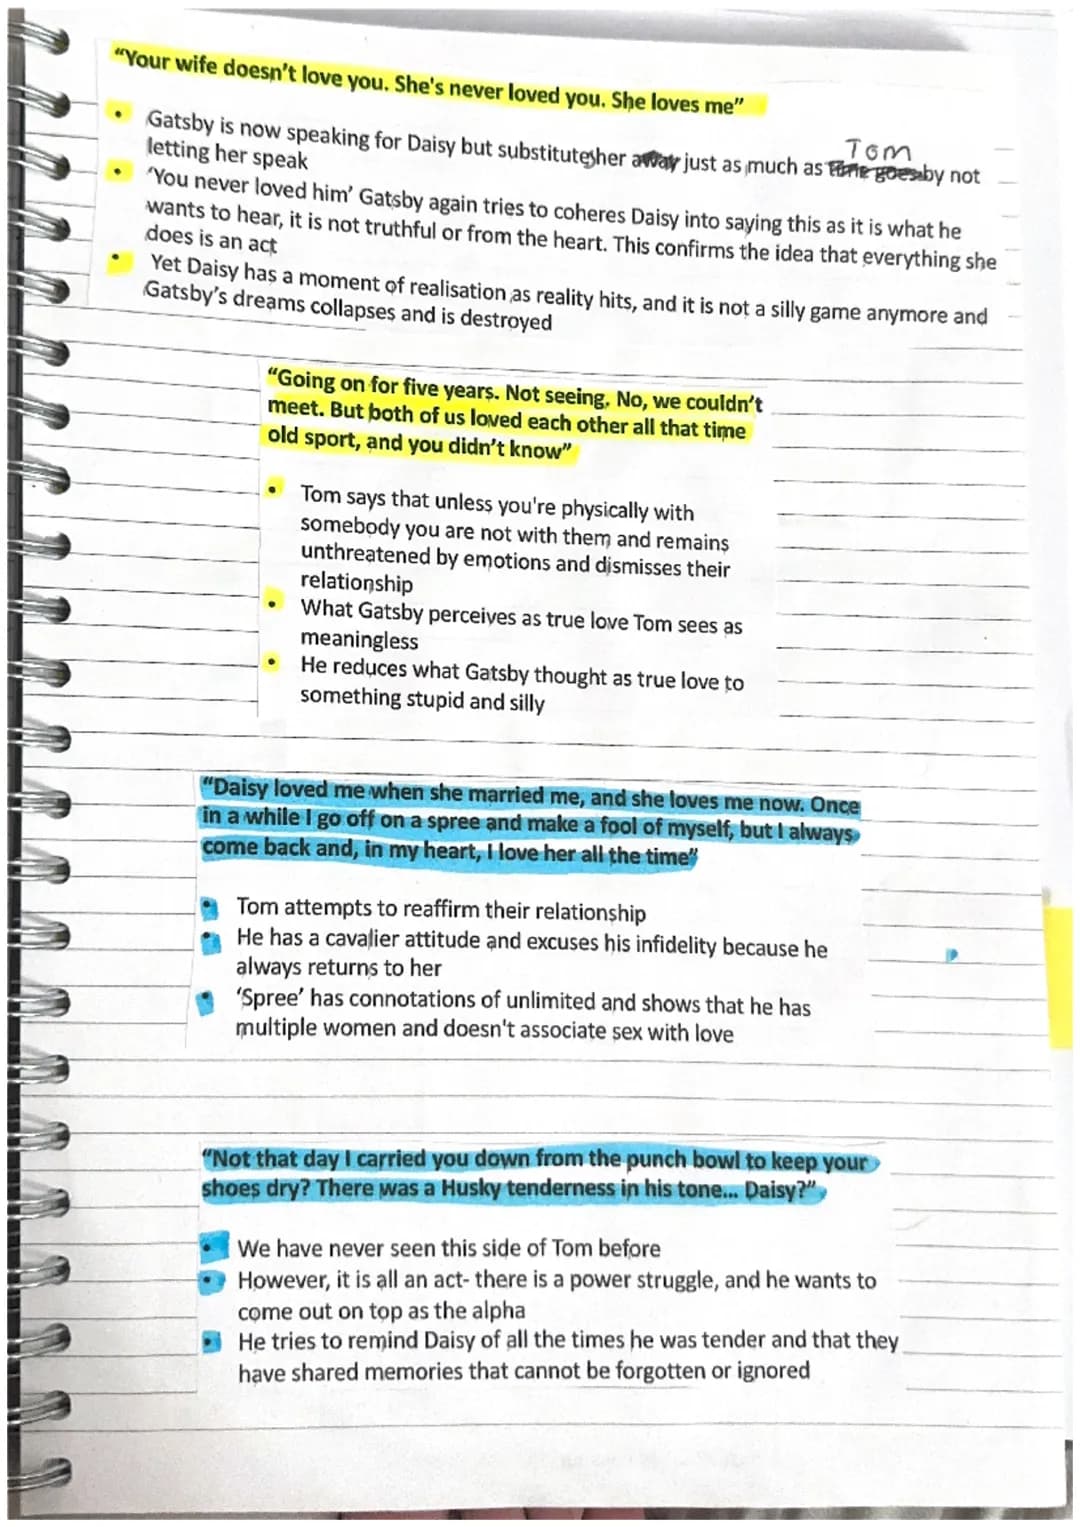 “Your wife doesn't love you. She's never loved you. She loves me”
• Gatsby is now speaking for Daisy but substitutes her away just as much as Tom by not
letting her speak
• 'You never loved him' Gatsby again tries to coheres Daisy into saying this as it is what he
wants to hear, it is not truthful or from the heart. This confirms the idea that everything she
does is an act
• Yet Daisy has a moment of realisation as reality hits, and it is not a silly game anymore and
Gatsby's dreams collapses and is destroyed
“Going on for five years. Not seeing. No, we couldn't
meet. But both of us loved each other all that time
old sport, and you didn't know”
• Tom says that unless you're physically with
somebody you are not with them and remains
unthreatened by emotions and dismisses their
relationship
• What Gatsby perceives as true love Tom sees as
meaningless
• He reduces what Gatsby thought as true love to
something stupid and silly
“Daisy loved me when she married me, and she loves me now. Once
in a while I go off on a spree and make a fool of myself, but I always
come back and, in my heart, I love her all the time”
• Tom attempts to reaffirm their relationship
• He has a cavalier attitude and excuses his infidelity because he
always returns to her
• 'Spree' has connotations of unlimited and shows that he has
multiple women and doesn't associate sex with love
“Not that day I carried you down from the punch bowl to keep your
shoes dry? There was a Husky tenderness in his tone... Daisy?”
• We have never seen this side of Tom before
• However, it is all an act- there is a power struggle, and he wants to
come out on top as the alpha
• He tries to remind Daisy of all the times he was tender and that they
have shared memories that cannot be forgotten or ignored